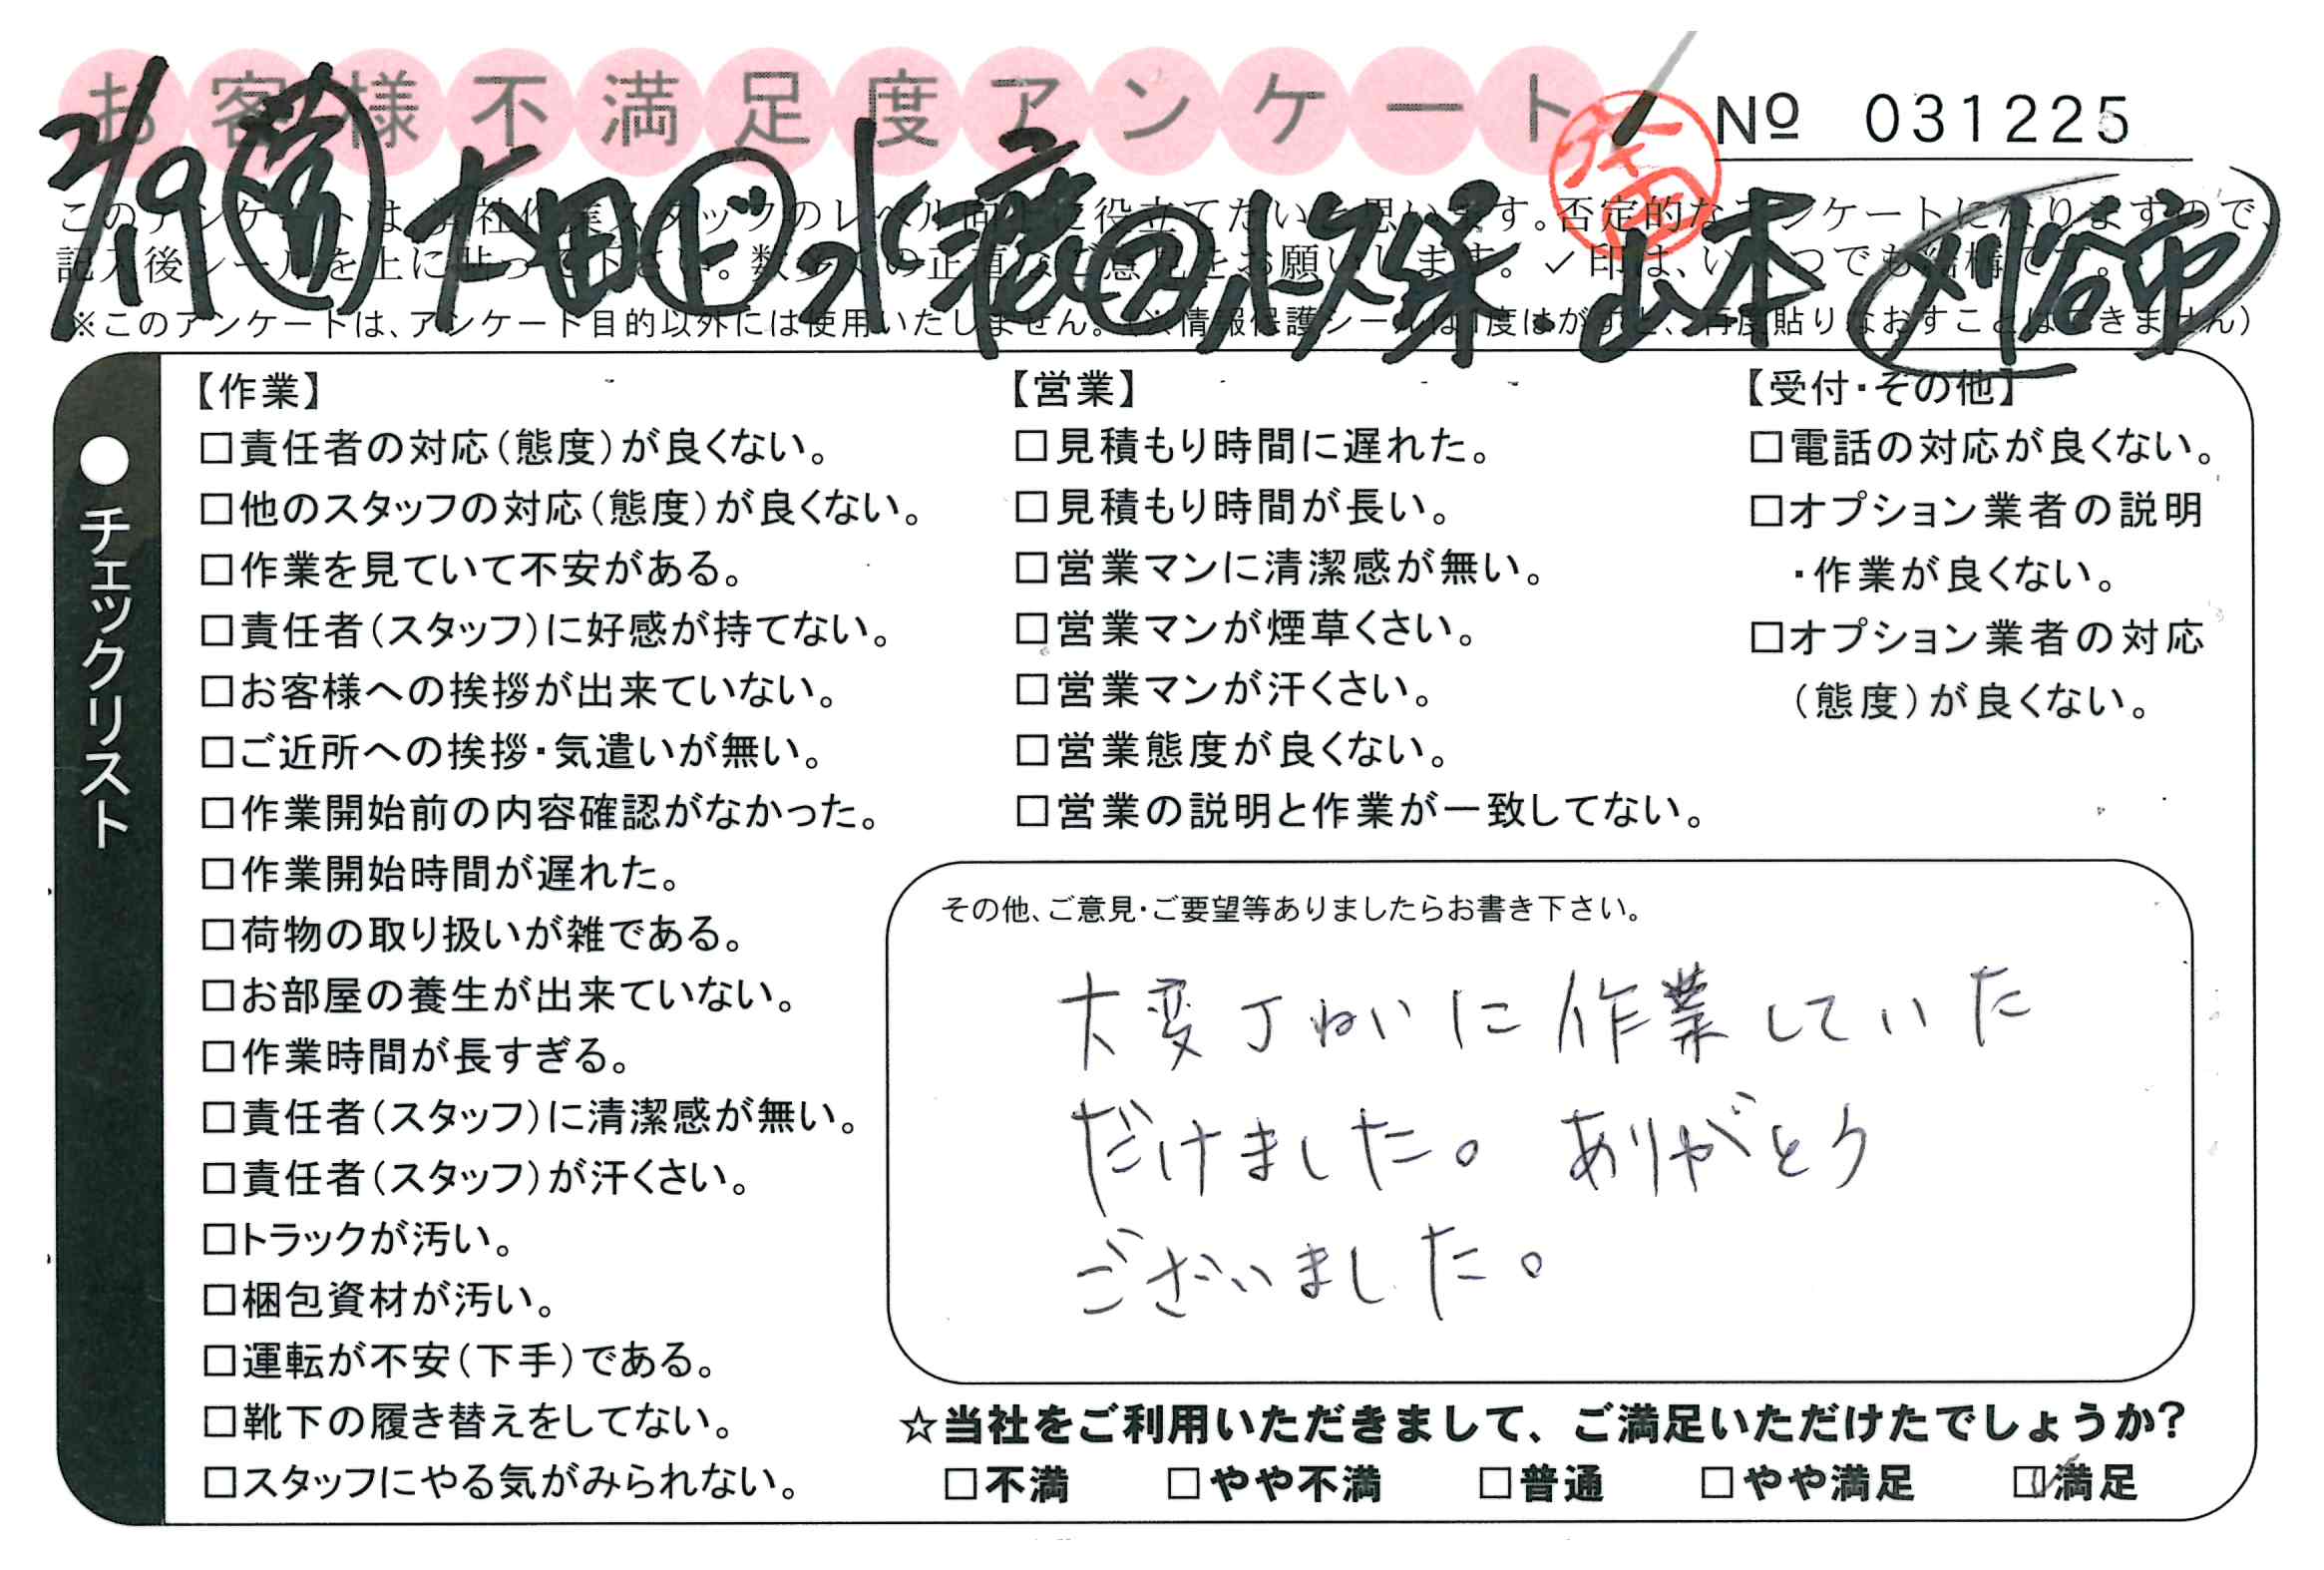 お客様不満足度アンケート
№ 031225
2/19 営 太田 ビ 水 リ 小久保 山本 刈谷市
このアンケートは、当社作業スタッフのレベル向上に役立てたいと思います。否定的なアンケートになりますので、
記入後シールを上に貼って下さい。数多くの正直なご意見をお願いします。✓印は、いくつでも結構です。
※このアンケートは、アンケート目的以外には使用いたしません。(※情報保護シールは1度はがすと、再度貼りなおすことはできません)
●チェックリスト
【作業】
□責任者の対応(態度)が良くない。
□他のスタッフの対応(態度)が良くない。
□作業を見ていて不安がある。
□責任者(スタッフ)に好感が持てない。
□お客様への挨拶が出来ていない。
□ご近所への挨拶・気遣いが無い。
□作業開始前の内容確認がなかった。
□作業開始時間が遅れた。
□荷物の取り扱いが雑である。
□お部屋の養生が出来ていない。
□作業時間が長すぎる。
□責任者(スタッフ)に清潔感が無い。
□責任者(スタッフ)が汗くさい。
□トラックが汚い。
□梱包資材が汚い。
□運転が不安(下手)である。
□靴下の履き替えをしてない。
□スタッフにやる気がみられない。
【営業】
□見積もり時間に遅れた。
□見積もり時間が長い。
□営業マンに清潔感が無い。
□営業マンが煙草くさい。
□営業マンが汗くさい。
□営業態度が良くない。
□営業の説明と作業が一致してない。
【受付・その他】
□電話の対応が良くない。
□オプション業者の説明
・作業が良くない。
□オプション業者の対応
(態度)が良くない。
その他、ご意見・ご要望等ありましたらお書き下さい。
大変丁ねいに作業していた
だけました。ありがとう
ございました。
☆当社をご利用いただきまして、ご満足いただけたでしょうか?
□不満 □やや不満 □普通 □やや満足 ☑満足